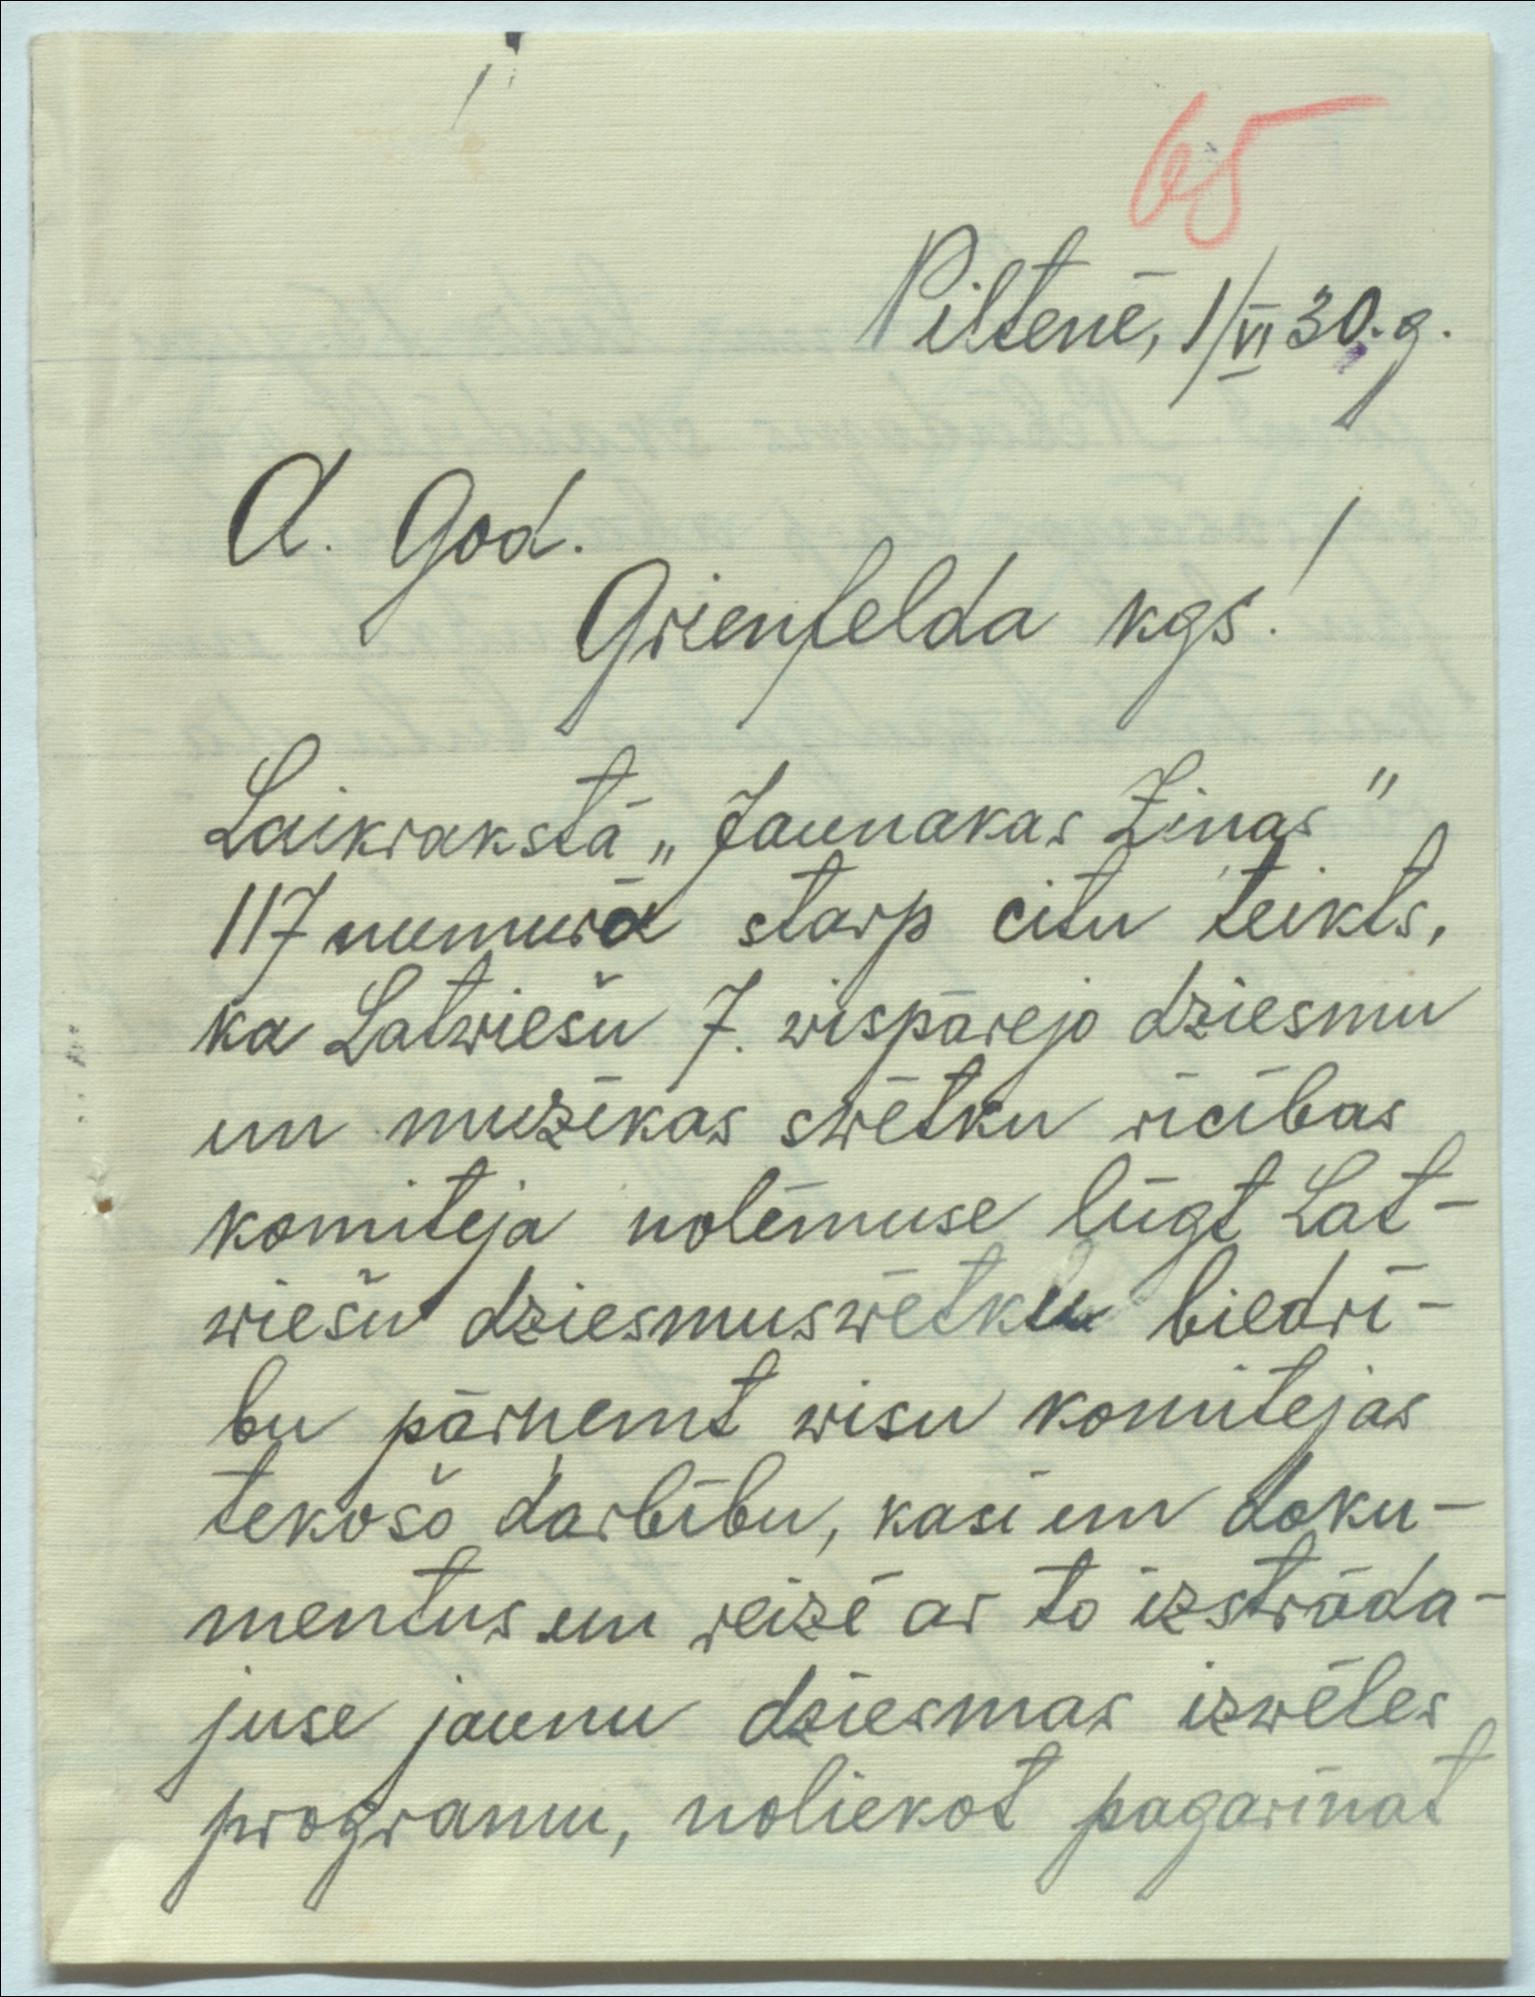 65
Piltenē, 1/VI 30. g.
A. God.
Grienfelda kgs!
Laikrakstā „Jaunakas Ziņas"
117 numurā starp citu teikts,
ka Latwiešu 7. wispārejo dziesmu
un muzikas swētku rīcības
komiteja nolēmuse lūgt Lat-
wiešu dziesmuswētku biedrī-
bu pārņemt wisu komitejas
tekošo darbību, kasi un doku-
mentus un reizē ar to izstrāda-
juse jaunu dziesmas izwēles
programu, noliekot pagarināt